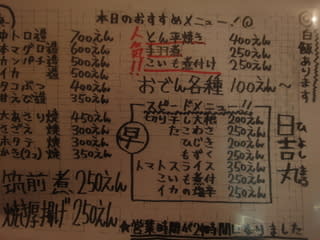 本日のおすすめメニュー!①
中トロ造 700えん
本マグロ造 600えん
カンパチ造 500えん
イカ造 500えん
タコぶつ 400えん
甘えび造 350えん
大あさり焼 450えん
さざえ焼 300えん
ホタテ焼 300えん
かき(2コ)焼 350えん
筑前煮 250えん
焼き厚揚げ 250えん
人気!!
とん平焼き 400えん
手羽煮 250えん
こいも煮付け 250えん
おでん各種 100えん〜
スピードメニュー!!
早
切り干し大根 200えん
たこわさ 250えん
ひじき 200えん
もずく 250えん
トマトスライス 350えん
こいも煮付 250えん
イカの塩辛 250えん
白飯あります
日吉丸
ひよしまる
★営業時間が24時間になりました